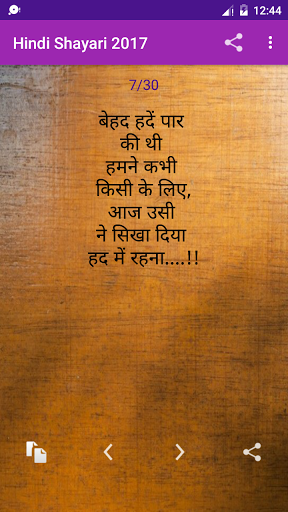 12:44
Hindi Shayari 2017
7/30
बेहद हदें पार
की थी
हमने कभी
किसी के लिए,
आज उसी
ने सिखा दिया
हद में रहना....!!